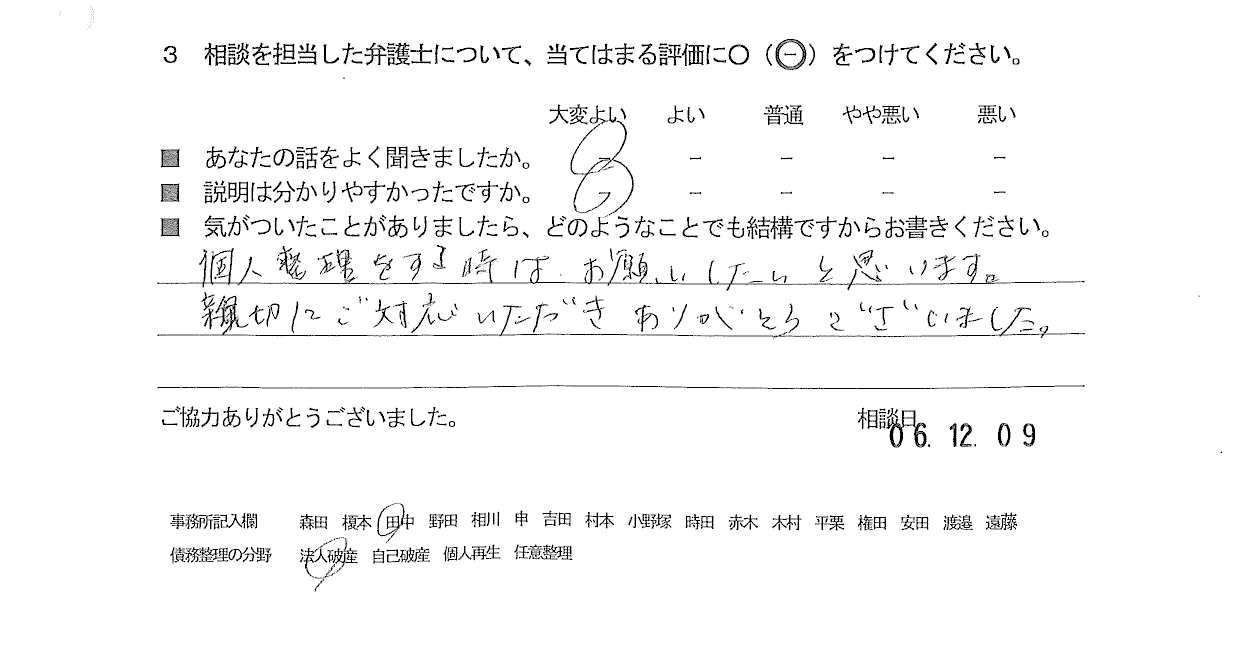 3 相談を担当した弁護士について、当てはまる評価に○（㊀）をつけてください。
大変よい よい 普通 やや悪い 悪い
■ あなたの話をよく聞きましたか。 － － － －
■ 説明は分かりやすかったですか。 － － － －
■ 気がついたことがありましたら、どのようなことでも結構ですからお書きください。
個人整理をする時は、お願いしたいと思います。
親切にご対応いただきありがとうございました。
ご協力ありがとうございました。 相談日
06.12.09
事務所記入欄 森田 榎本 田中 野田 相川 申 吉田 村本 小野塚 時田 赤木 木村 平栗 権田 安田 渡邉 遠藤
債務整理の分野 法人破産 自己破産 個人再生 任意整理